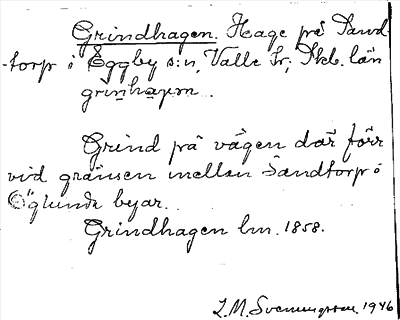 Grindhagen. Hage på Sand-
torp i Eggby s:n, Valle hr; Skb. län
grinhaγ̣ən.
Grind på vägen där förr
vid gränsen mellan Sandtorp o
Öglunda byar.
Grindhagen lm. 1858.
L.M. Svenungsson. 1946